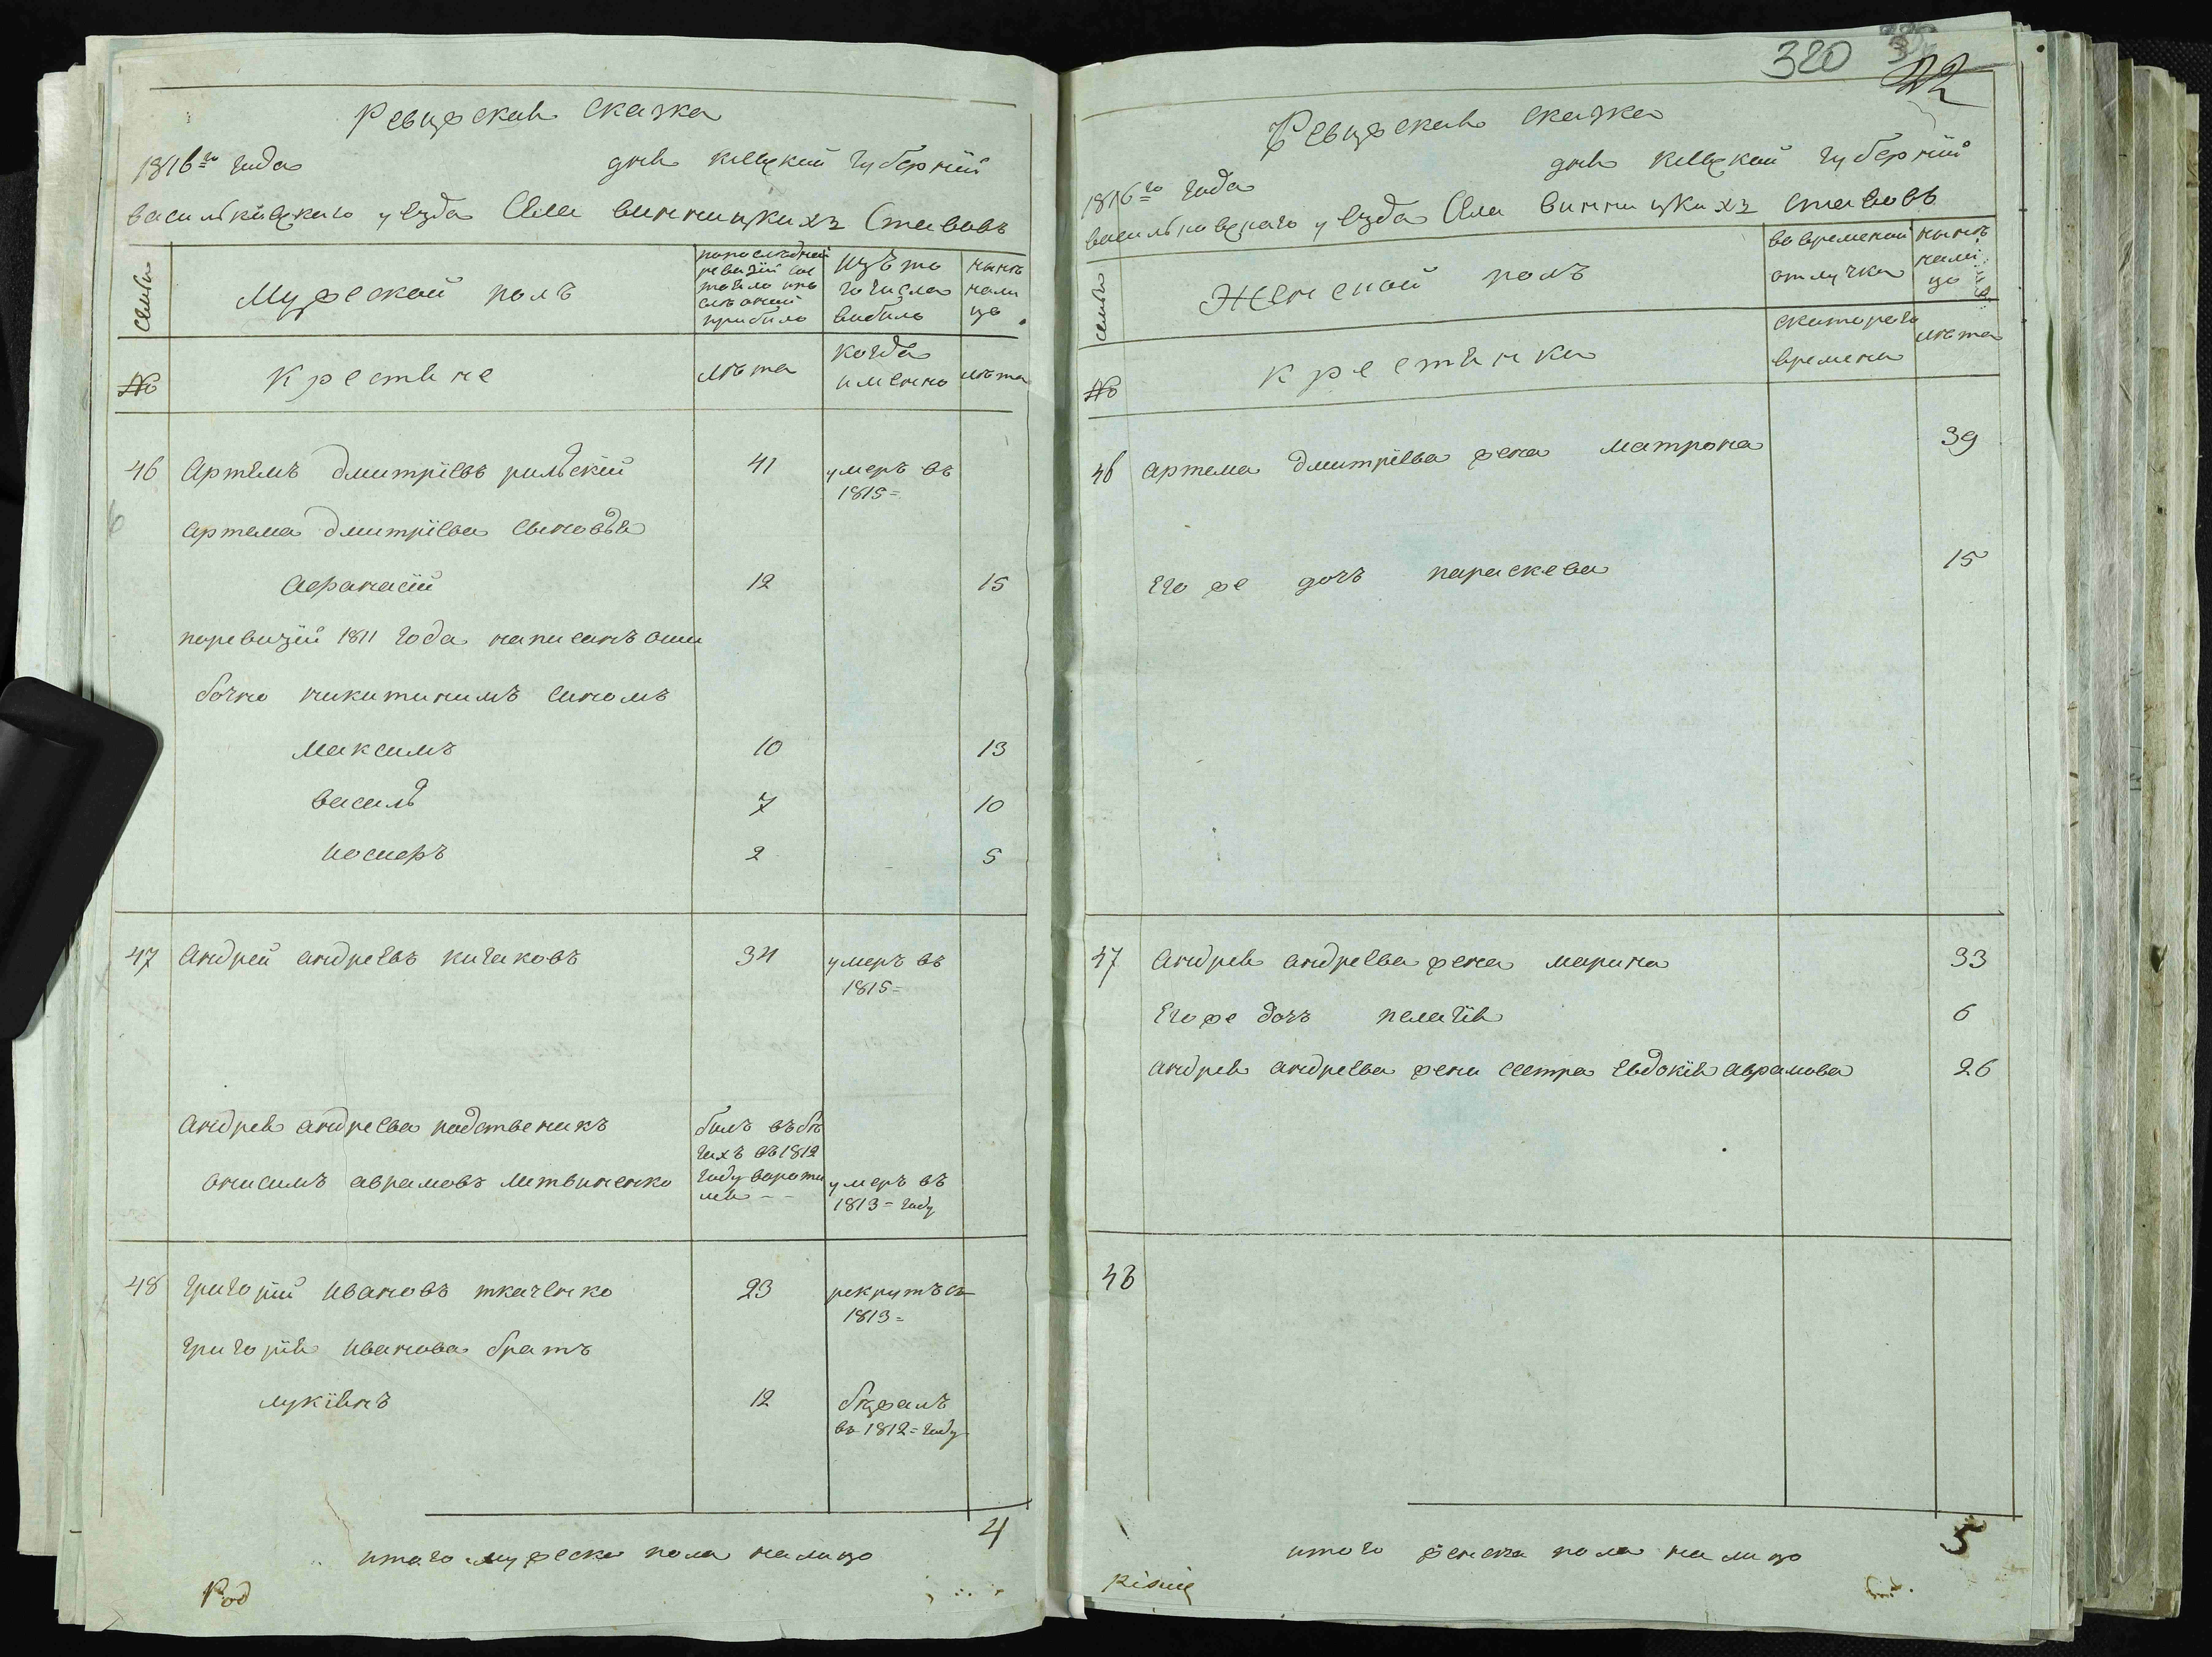 Ревизская сказка
1816го года дня Киевской губернии
васильковского уезда Села винницкихъ Ставовъ
Семьи
Мужеской полъ
по последней ревизiи состояло и после оной прибыло
изъ того числа выбыло
ныне на лицо
№
Крестьяне
лета
когда именно
лета
46 Артемъ дмитрiевъ рильскiй 41 умеръ въ 1815=
Артема дмитрiева сыновья
Афанасiй 12 15
по ревизiи 1811 года написанъ оши
бочно никитинимъ синомъ
максимъ 10 13
василь 7 10
иосифъ 2 5
47 Андрей андреевъ кичаковъ 34 умеръ въ 1815=
Андрея андреева родственикъ былъ въ бе
гахъ въ 1812
онисимъ аврамовъ литвиненко году вороти
лся -- умеръ въ 1813= году
48 григорiй ивановъ ткаченко 23 рекрутъ въ 1813=
григорiя иванова братъ
лукiянъ 12 бежалъ въ 1812= году
4
итого мужеска пола на лицо
Pod
320
22
Ревизская сказка
1816го года дня Киевской губернии
васильковского уезда Села винницкихъ ставовъ
семьи
Женской полъ
во временной отлучке
ныне на лицо
№
крестьянки
с которого времени
лета
46 артема дмитрiева жена матрона 39
Его же дочь параскева 15
47 Андрея андреева жена марина 33
Его же дочь пелагiя 6
Андрея андреева жени сестра Евдокiя аврамова 26
48
5
итого женска пола на лицо